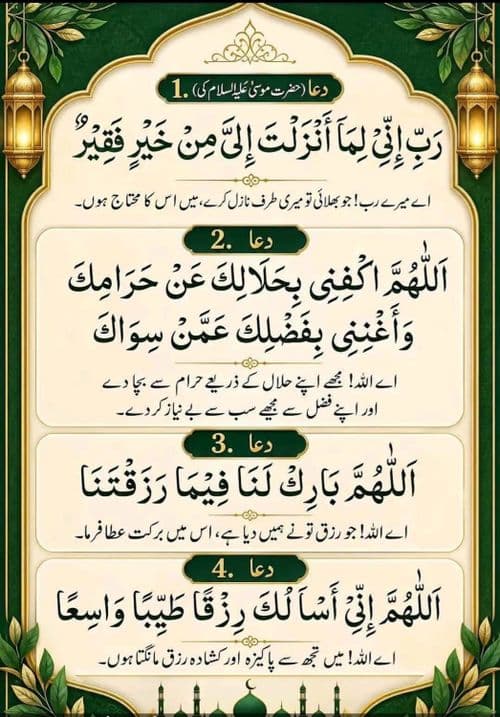 1. دعا (حضرت موسیٰ علیہ السلام کی)
رَبِّ إِنِّيْ لِمَاۤ أَنْزَلْتَ إِلَيَّ مِنْ خَيْرٍ فَقِيْرٌ
اے میرے رب! جو بھلائی تو میری طرف نازل کرے، میں اس کا محتاج ہوں۔
2. دعا
اَللّٰهُمَّ اكْفِنِي بِحَلَالِكَ عَنْ حَرَامِكَ
وَأَغْنِنِي بِفَضْلِكَ عَمَّنْ سِوَاكَ
اے اللہ! مجھے اپنے حلال کے ذریعے حرام سے بچا دے
اور اپنے فضل سے مجھے سب سے بے نیاز کر دے۔
3. دعا
اَللّٰهُمَّ بَارِكْ لَنَا فِيْمَا رَزَقْتَنَا
اے اللہ! جو رزق تو نے ہمیں دیا ہے، اس میں برکت عطا فرما۔
4. دعا
اَللّٰهُمَّ إِنِّيْ أَسْاَلُكَ رِزْقًا طَيِّبًا وَاسِعًا
اے اللہ! میں تجھ سے پاکیزہ اور کشادہ رزق مانگتا ہوں۔